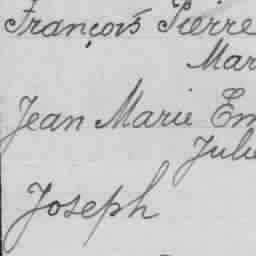 François Pierre
Mar
Jean Marie Em
Julie
Joseph